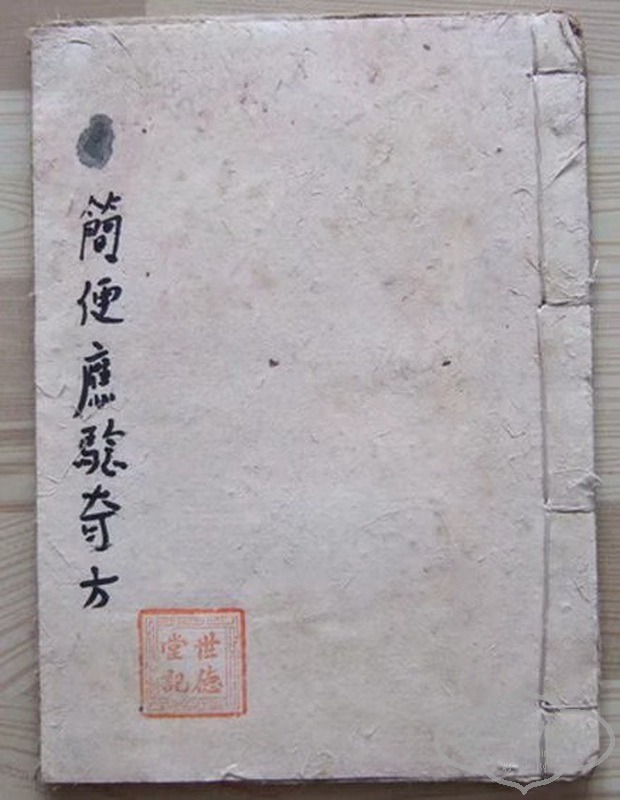 簡便應驗奇方
世德
堂記